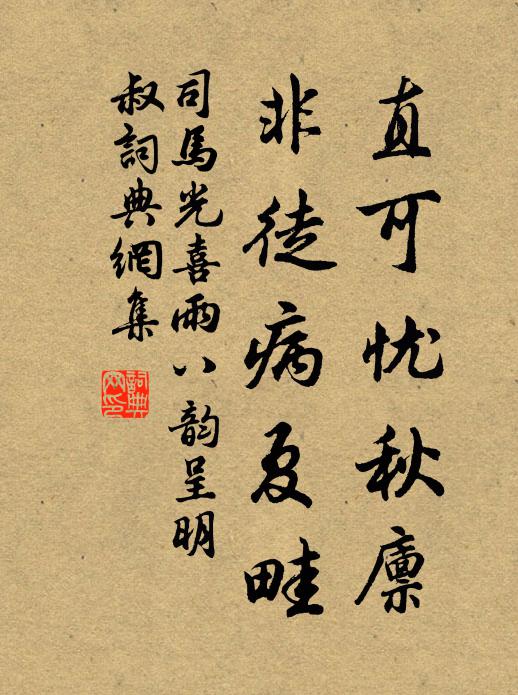 直可忧秋廪
非徒病夏畦
司馬光喜雨八韵呈明
叔詞典網集
詞典
网印